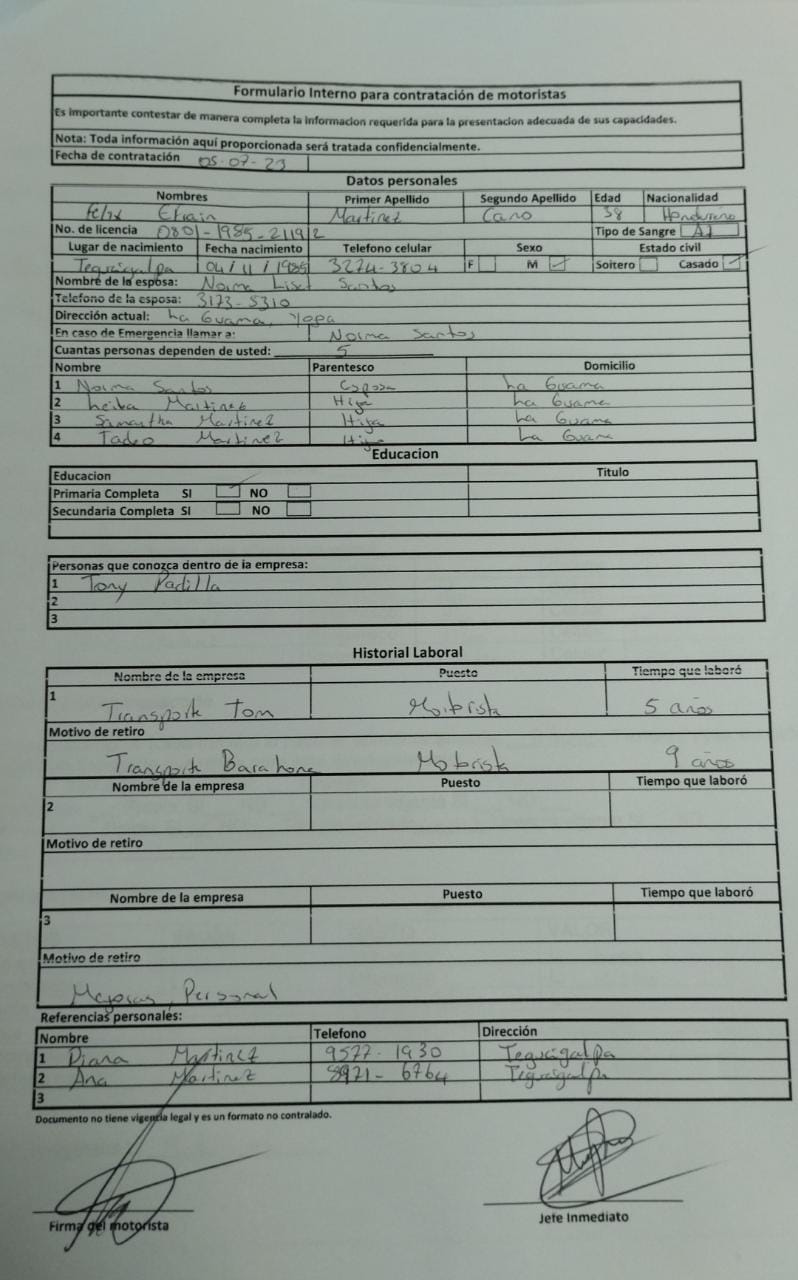 Formulario Interno para contratación de motoristas
Es importante contestar de manera completa la informacion requerida para la presentacion adecuada de sus capacidades.
Nota: Toda información aquí proporcionada será tratada confidencialmente.
Fecha de contratación 05-07-23
Datos personales
Nombres Primer Apellido Segundo Apellido Edad Nacionalidad
Felix Efrain Martinez Cano 38 Hondureño
No. de licencia 0801-1985-21192 Tipo de Sangre
Lugar de nacimiento Fecha nacimiento Telefono celular Sexo Estado civil
Tegucigalpa 04/11/1985 3274-3804 F M Soltero Casado
Nombre de la esposa: Norma Liset Santos
Telefono de la esposa: 3173-5310
Dirección actual: La Guama, Yopa
En caso de Emergencia llamar a: Norma Santos
Cuantas personas dependen de usted: 5
Nombre Parentesco Domicilio
1 Norma Santos Esposa La Guama
2 Martinez Hija La Guama
3 Samantha Martinez Hija La Guama
4 Tadeo Martinez La Guama
Educacion
Educacion Titulo
Primaria Completa SI NO
Secundaria Completa SI NO
Personas que conozca dentro de la empresa:
1 Tony Padilla
2
3
Historial Laboral
Nombre de la empresa Puesto Tiempo que laboró
1 Transporte Tom Motorista 5 años
Motivo de retiro
Transporte Barahona Motorista 9 años
Nombre de la empresa Puesto Tiempo que laboró
2
Motivo de retiro
Nombre de la empresa Puesto Tiempo que laboró
3
Motivo de retiro
Mejoras Personal
Referencias personales:
Nombre Telefono Dirección
1 Diana Martinez 9577-1930 Tegucigalpa
2 Ana Martinez 8971-6764 Tegucigalpa
3
Documento no tiene vigencia legal y es un formato no contralado.
Firma del motorista Jefe Inmediato